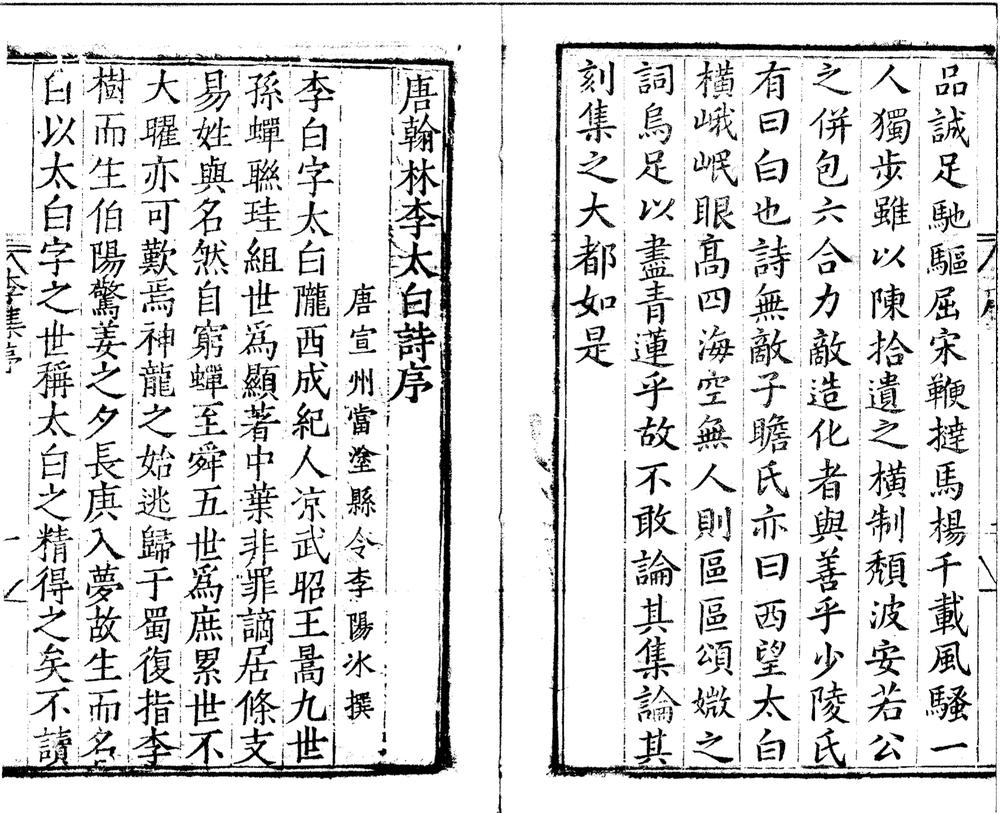 品誠足馳驅屈宋鞭撻馬楊千載風騷一
人獨步雖以陳拾遺之橫制頹波安若公
之併包六合力敵造化者與善乎少陵氏
有曰白也詩無敵子瞻氏亦曰西望太白
橫峨岷眼髙四海空無人則區區頌媺之
詞烏足以盡青蓮乎故不敢論其集論其
刻集之大都如是
唐翰林李太白詩序
唐宣州當塗縣令李陽冰撰
李白字太白隴西成紀人凉武昭王暠九世
孫蟬聮珪組世爲顯著中葉非罪謫居條支
易姓與名然自窮蟬至舜五世爲庶累世不
大曜亦可歎焉神龍之始逃歸于蜀復指李
樹而生伯陽驚姜之夕長庚入夢故生而名
白以太白字之世稱太白之精得之矣不讀
李集序